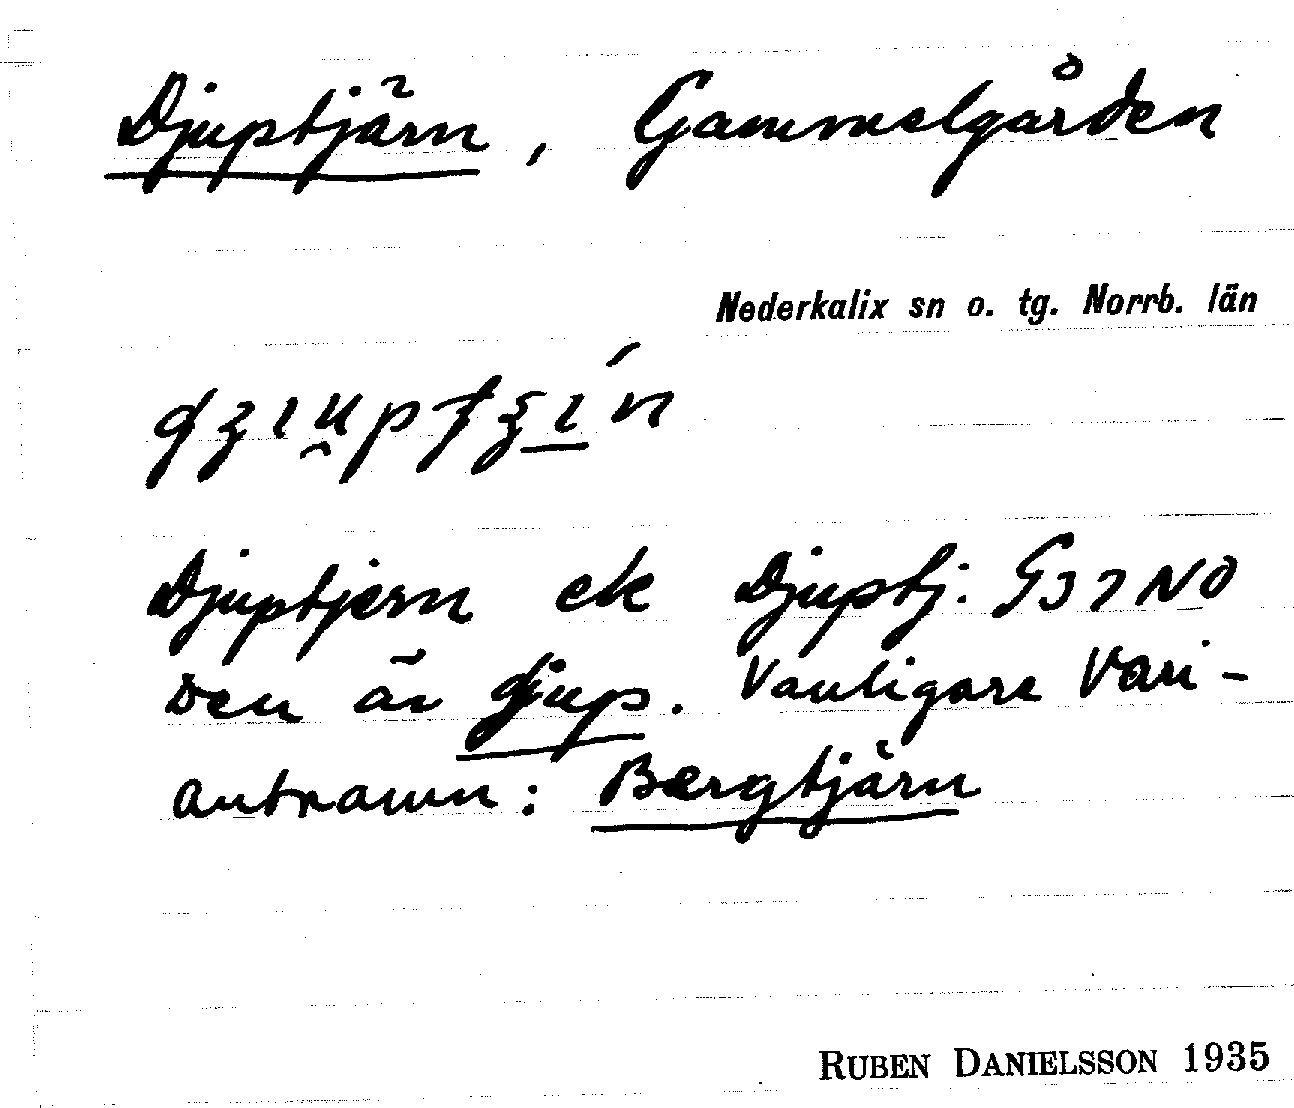 Djuptjärn, Gammelgården
Nederkalix sn o. tg. Norrb. län
Djuptjern ek Djuptj: G37NO
Den är djup. Vanligare Vari-
antnamn: Bergtjärn
RUBEN DANIELSSON 1935